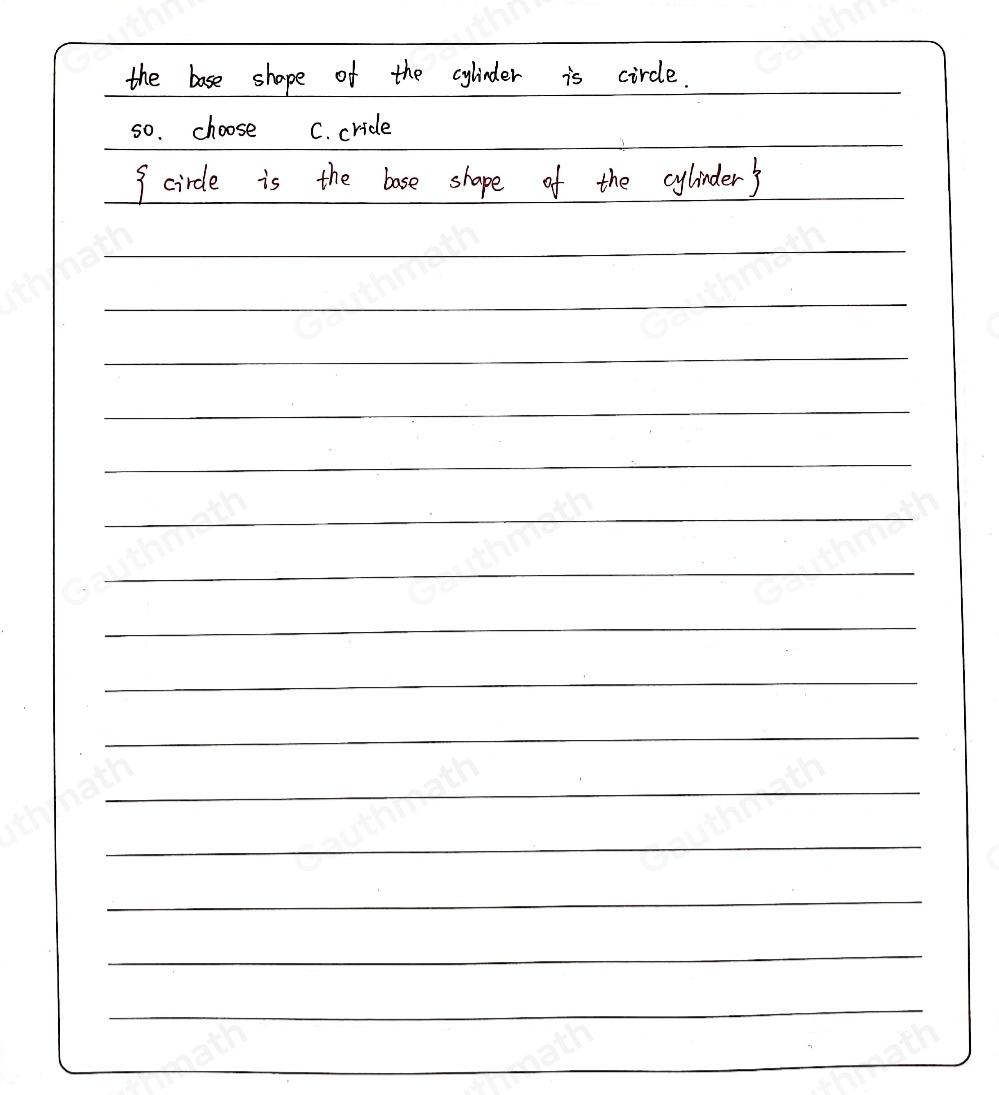 the base shape of the cylinder is circle.
so. choose C. cricle
{ circle is the base shape of the cylinder }
Gauthmath